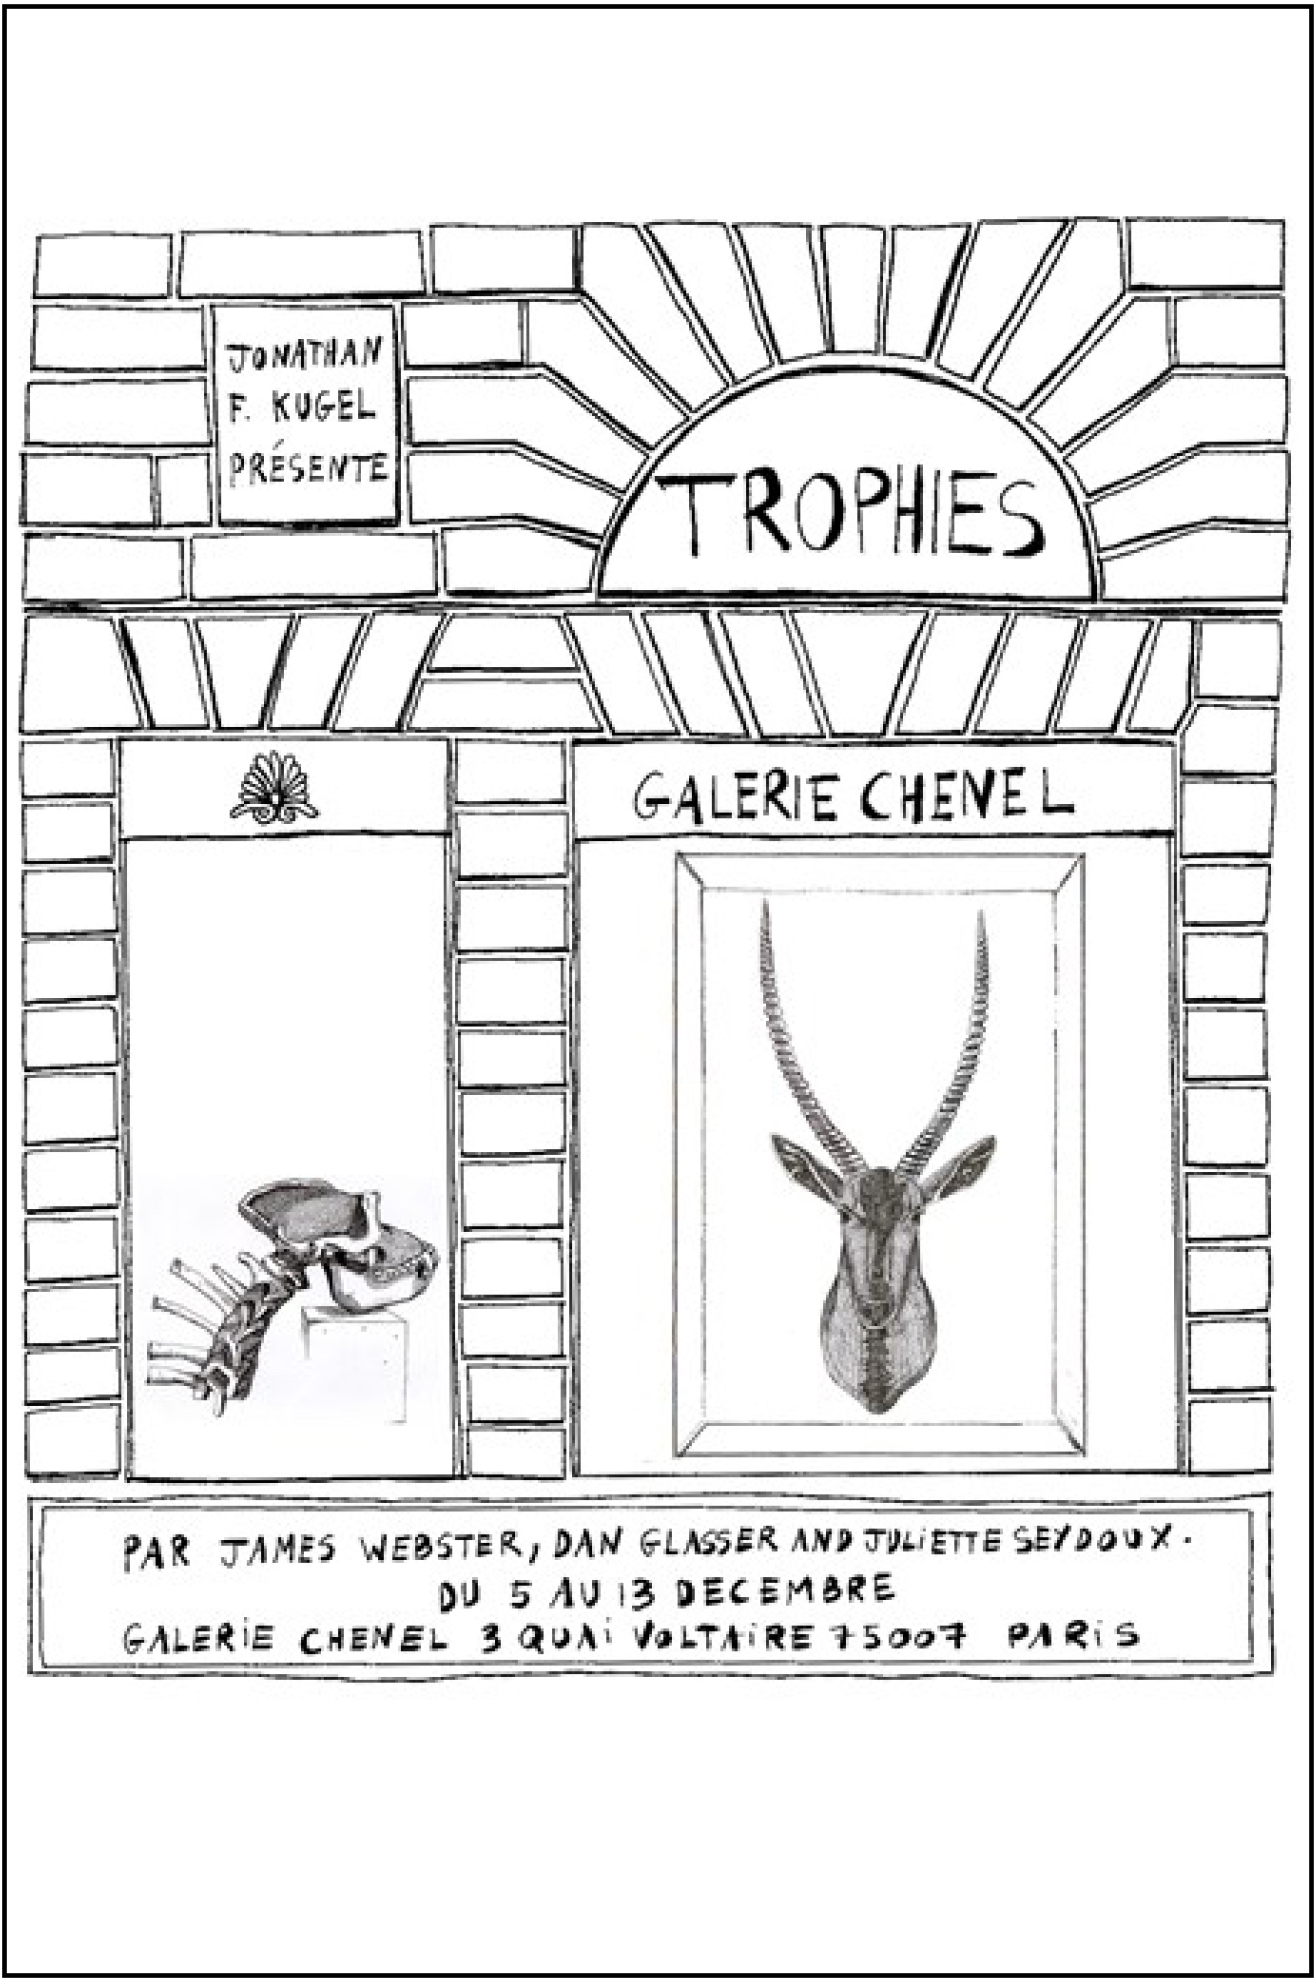 JONATHAN
F. KUGEL
PRÉSENTE
TROPHIES
GALERIE CHENEL
PAR JAMES WEBSTER, DAN GLASSER AND JULiETTE SEYDOUX.
DU 5 AU 13 DECEMBRE
GALERiE CHENEL 3 QUAi VOLTAiRE 75007 PARiS